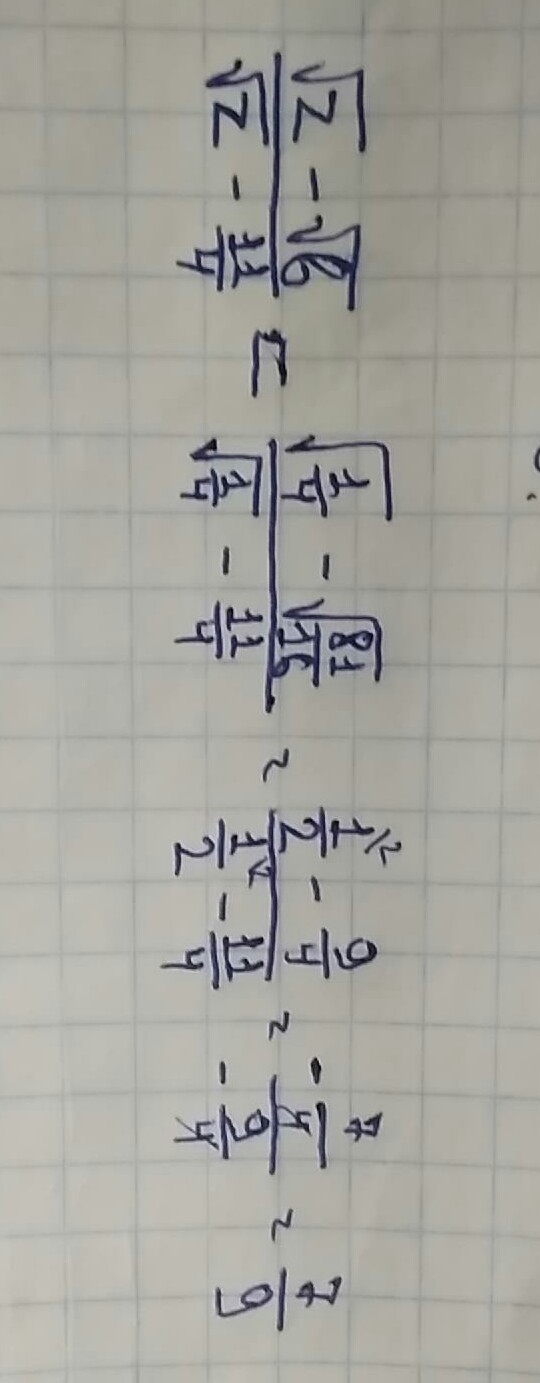 \frac{\sqrt{z} - \sqrt{b}}{\sqrt{z} - \frac{11}{4}} = \frac{\sqrt{\frac{1}{4}} - \sqrt{\frac{81}{16}}}{\sqrt{\frac{1}{4}} - \frac{11}{4}} = \frac{\frac{1}{2}^{\backslash 2} - \frac{9}{4}}{\frac{1}{2}^{\backslash 2} - \frac{11}{4}} = \frac{-\frac{7}{4}}{-\frac{9}{4}} = \frac{7}{9}